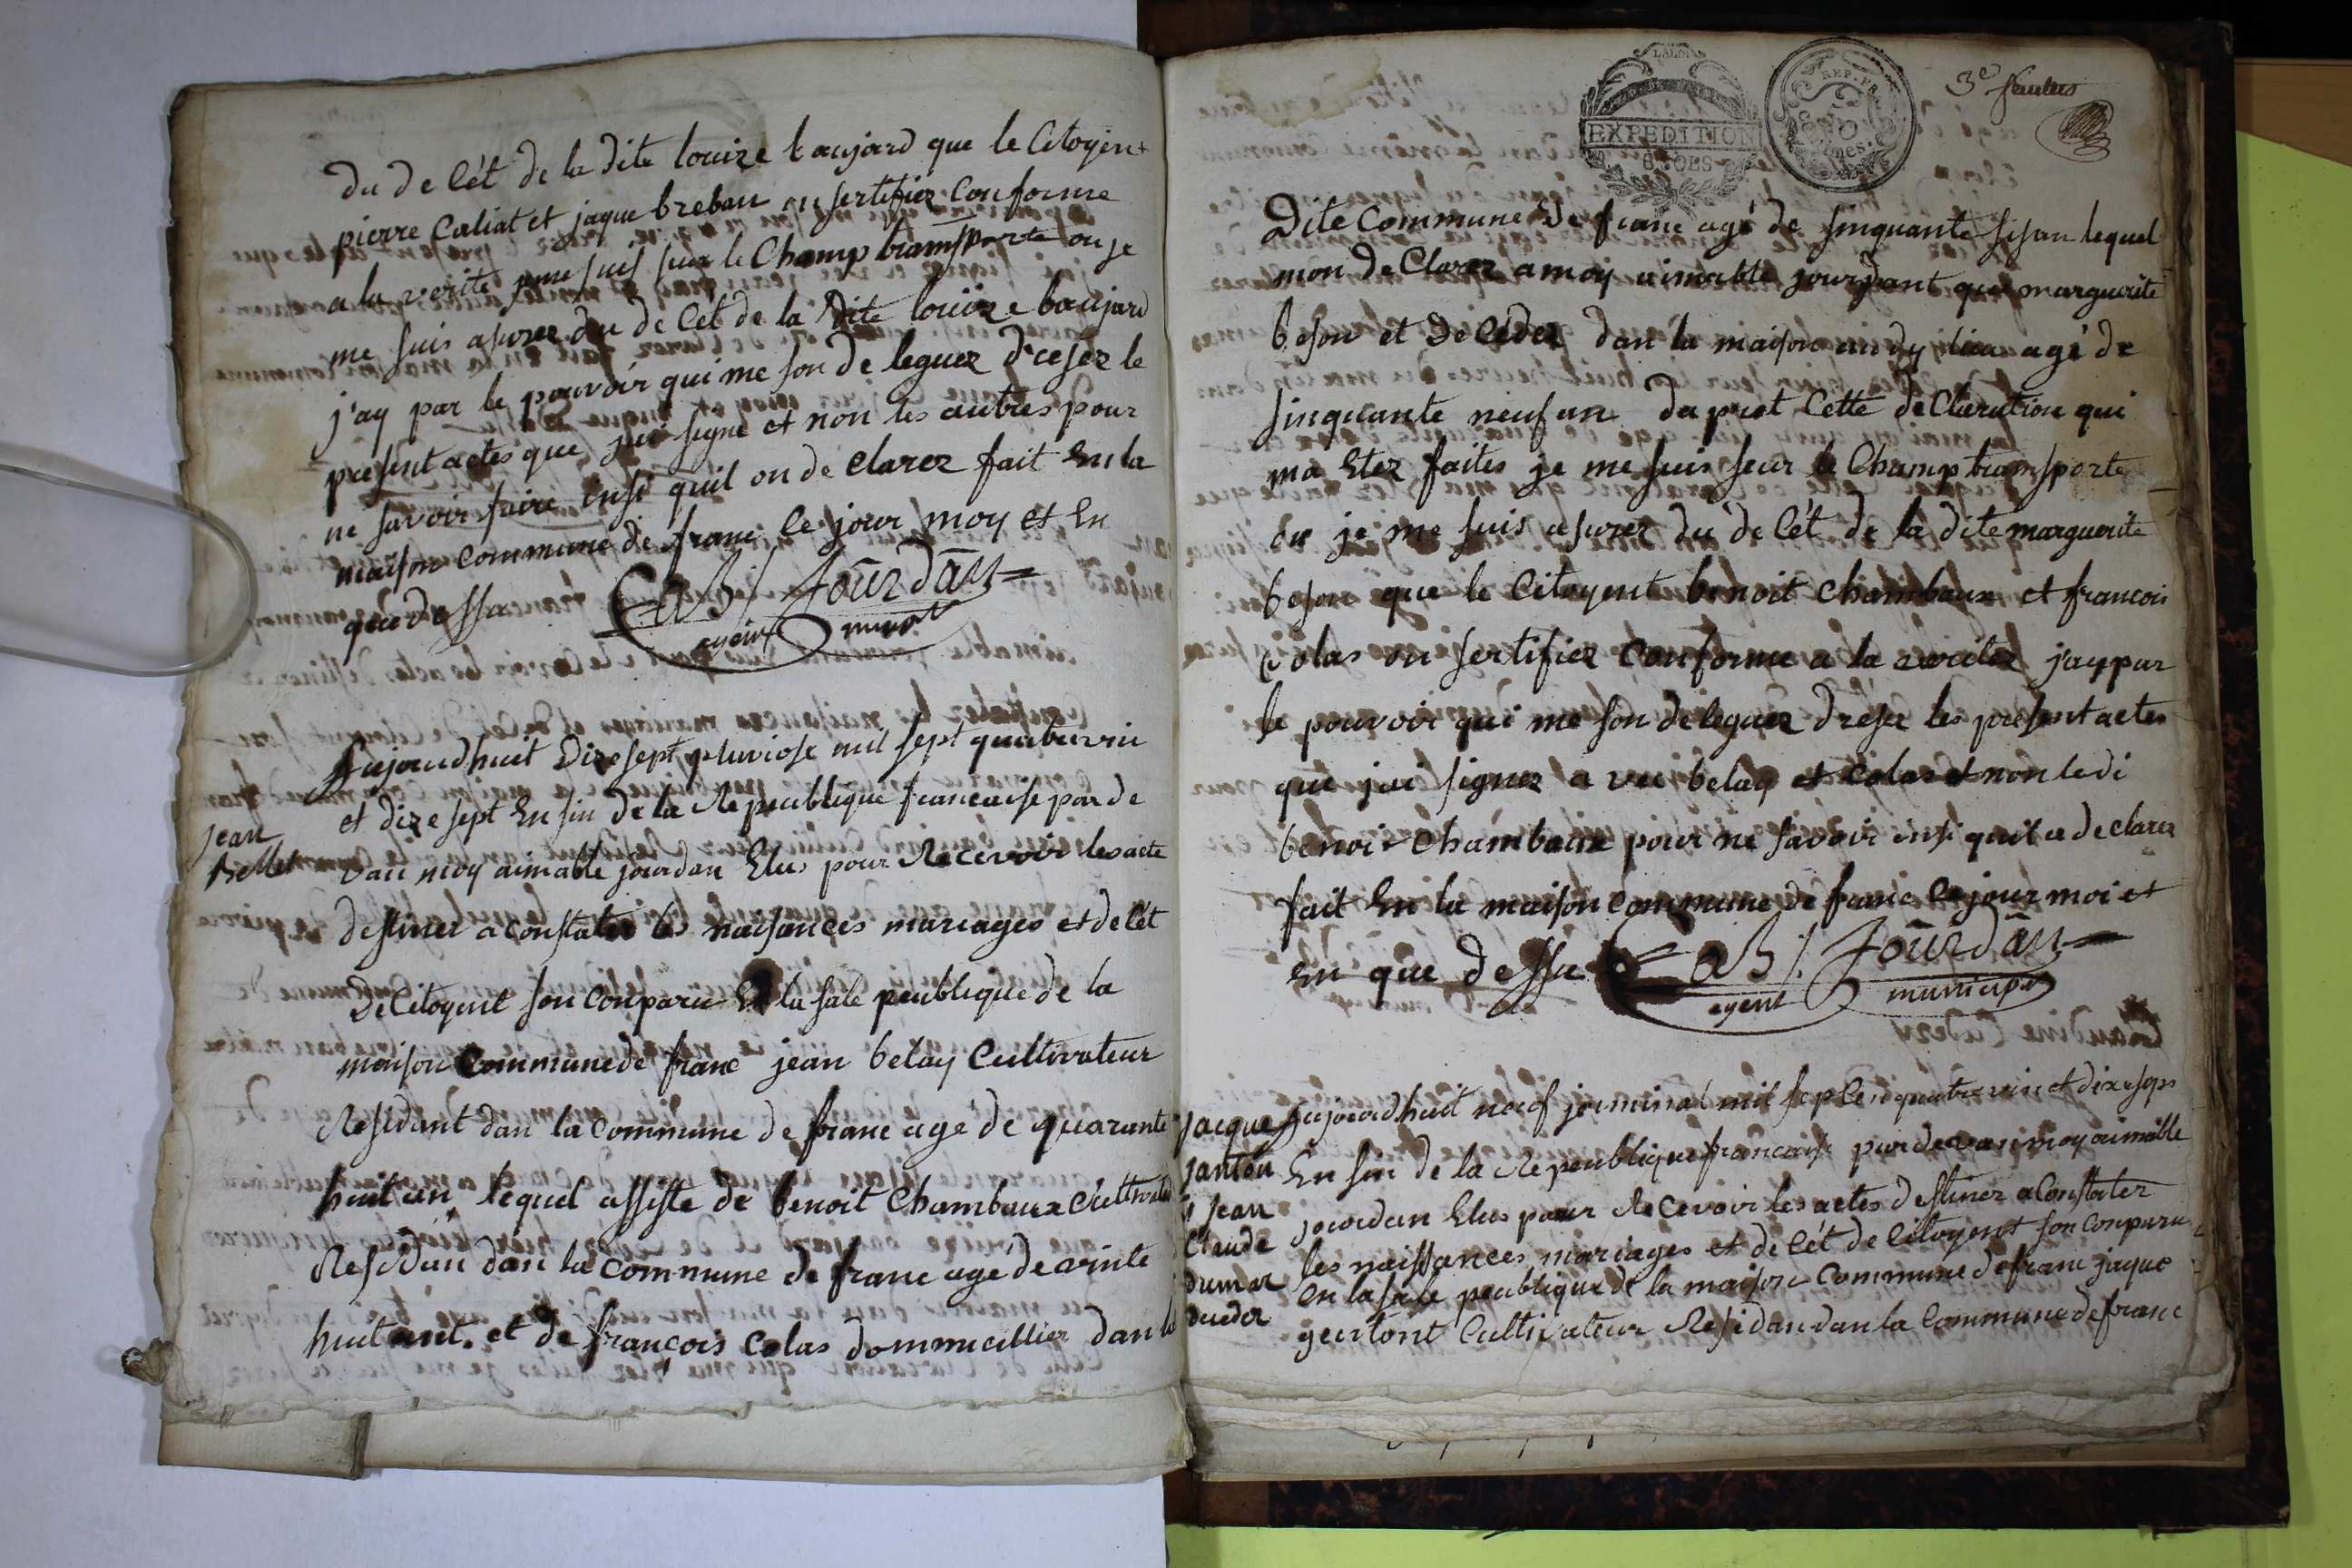 du de Cét de la dite louize baujard que le Citoyent
pierre Caliat et jaque breban on sertifiez Conforme
a la verite sur le Champ transporte ou je
me suis asurez du de Cét de la dite louize baujard
j'ay par le pouvoir qui me son de leguez dresez le
present actes que jai signe et non les autres pour
ne savoir faire insi quil on de clarez fait En la
maison commune de franc le jour moy et En
que dessu
ab Jourdan
agent
Jean
Bellet
Aujourdhuit dixesept pluviose mil sept quatrevin
et dixesept En sin de la Republique francaise par de
van moy aimable jourdan Elus pour Recevoir les acte
destinez a constater les naisances mariages et de Cét
de Citoyent son Conparu En la sale peublique de la
maison Commune de franc jean belay Cultivateur
Residant dan la Commune de franc agé de quarante
huit an lequel assiste de benoit Chambaux Cultivateu
Residan dan la Commune de franc agé de vinte
huit ant. et de françois Colas dommicillier dan la
EXPEDITION
REP. FRA
3e feuillets
Dite Commune de franc agé de sinquante sisan lequel
mon de Clarez a moy aimable jourdant que marguerite
beson et de Cédez dan la maison audy lieu agé de
sinquante neuf an da prest Cette de Claration qui
ma Etez faites je me suis seur le Champ transporte
ou je me suis asurez du de Cét de la dite marguerite
beson que le Citoyent benoit Chambaux et francois
Colas on sertifiez Conforme a la veritez jay par
le pouvoir qui me son deleguez dresez les present actes
que jai signez a vec belay et Colas et non ledi
benoi Chambaux pour ne savoir insi quil a de clarez
fait En la maison Commune de franc le jour moi et
En que dessu
ab Jourdan
agent municipa
Jacque
janton
i Jean
Claude
dumar
dueder
Aujourdhuit neof jerminal mil sep Cen quatre vin et dixesept
En sin de la Republique francaise pardevan moy aimable
jourdan Elus pour Recevoir les actes destinez a Constater
les naissances mariages et de Cét de Citoyent son Conparu
En la sale peublique de la maison Commune de franc jaque
geantont Cultivateur Residan dan la Commune de franc